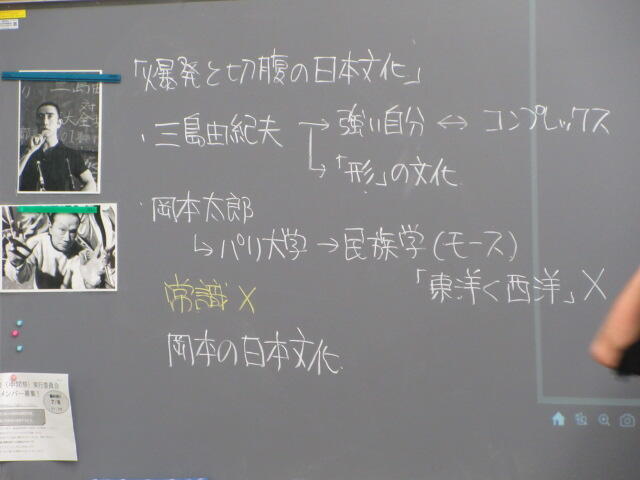 「爆発と切腹の日本文化」
・三島由紀夫 → 強い自分 ↔ コンプレックス
↳「形」の文化
・岡本太郎
↳パリ大学→民族学(モース)
「東洋<西洋」×
常識×
岡本の日本文化
三島由
対
実行委員会
メンバー募集!